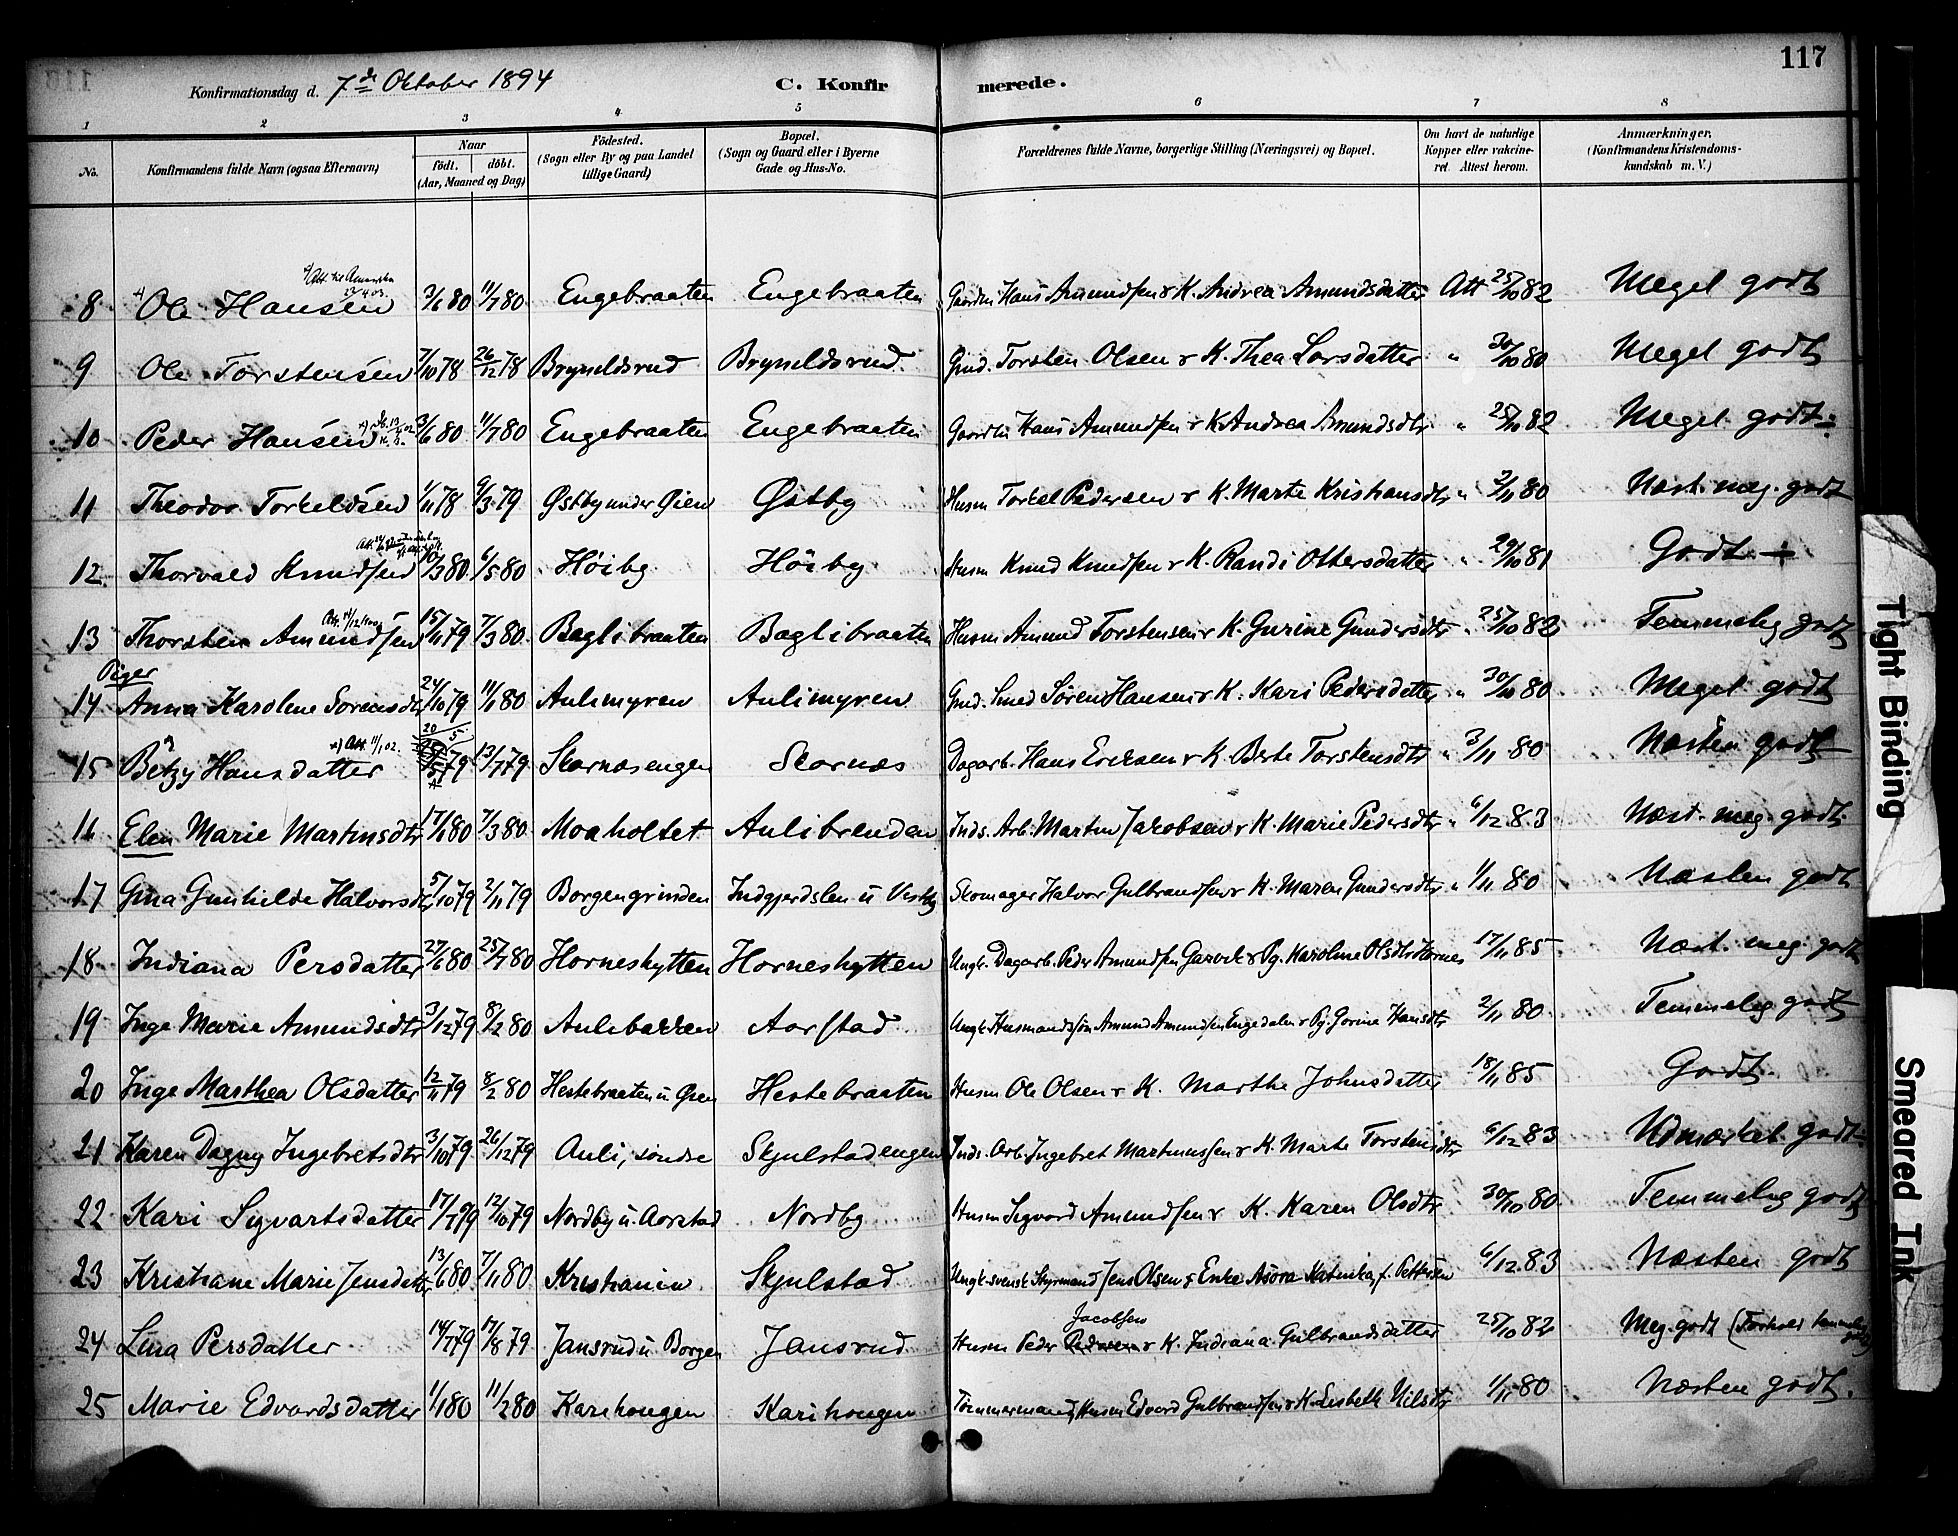 117
Konfirmationsdag d. 7de Oktober 1894 C. Konfirmerede.
1 2 3 4 5 6 7 8
No. Konfirmandens fulde Navn (ogsaa Efternavn) Naar födt. döbt. (Aar, Maaned og Dag) Födested. (Sogn eller By og paa Landet tillige Gaard) Bopæl. (Sogn og Gaard eller i Byerne Gade og Hus-No. Forældrenes fulde Navne, borgerlige Stilling (Næringsvei) og Bopæl. Om havt de naturlige Kopper eller vakcineret. Attest herom. Anmærkninger. (Konfirmandens Kristendomskundskab m. V.)
Att. til Amerika 23/4 03.
8 Ole Hansen 3/6 80 11/7 80 Engebraaten Engebraaten Gaardm Hans Amundsen & K. Andrea Amundsdatter Att 25/10 82 Meget godt
9 Ole Torstensen 7/10 78 26/12 78 Bryneldsrud Bryneldsrud. Gmd. Torsten Olsen & K. Thea Larsdatter " 30/10 80 Meget godt
10 Peder Hansen 3/6 80 11/7 80 Engebraaten Engebraaten Gaardm Hans Amundsen & K Andrea Amundsdtr " 25/10 82 Meget godt
11 Theodor Torkeldsen 1/11 78 9/3 79 Østby under Øien Østby Husm Torkel Pedersen & K. Marte Kristiansdtr " 2/11 80 Næst. meg. godt
12. Thorvald Knudsen /3 80 6/5 80 Höiby Höiby Husm Knud Knudsen & K. Randi Ottersdatter " 29/10 81 Godt
13 Thorsten Amundsen 15/11 79 7/3 80. Baglibraaten Baglibraaten Husm Amund Torstensen & K. Gurine Gundersdtr " 25/10 82 Temmelig godt
Piger
14 Anna Karoline Sörensdtr 24/10 79 11/1 80 Aulimyren Aulimyren Gmd. Smed Sören Hansen & K. Kari Pedersdatter " 30/10 80 Meget godt
x) Att. 11/1 02. 20/5
15 Betzy Hansdatter 79 13/7 79 Skarnæsengen Skarnæs Dagarb. Hans Ericksen & K. Berte Torstensdtr " 3/11 80 Næsten godt
16 Elen Marie Martinsdtr 17/1 80 7/3 80. Moaholtet Aulibrenden Inds. Arb. Martin Jakobsen & K. Marie Pedersdtr " 6/12 83 Næst. meg. godt
17 Gina Gunhilde Halvorsdtr 5/10 79 2/11 79 Borgengrinden Indgjerdslen u Vestby Skomager Halvor Gulbrandsen & K. Maren Gundersdtr " 1/11 80 Næsten godt
18 Indiana Persdatter 27/6 80 25/7 80 Horneshytten Horneshytten Ungk. Dagarb. Peder Amundsen Garvik & Pg. Karoline Olsdtr Hornes 17/11 85 Næst. meg godt
19 Inge Marie Amundsdtr 3/12 79 8/2 80 Aulibakken Aarstad Ungk. Husmandssön Amund Amundsen Engedalen & Pg. Gorine Hansdtr 2/11 80 Temmelig godt
20 Inge Marthea Olsdatter 12/11 79 8/2 80 Hestebraaten u Øien Hestebraaten Husm Ole Olsen & K. Marthe Johnsdatter 18/11 85 Godt.
21 Karen Dagny Ingebretsdtr 3/10 79 26/12 79 Auli, söndre Skjulstadengen Inds. Arb. Ingebret Martinussen & K. Marte Torstensdtr 6/12 83 Udmærket godt
22 Kari Sigvartsdatter 17/7 79 12/10 79 Nordby u. Aarstad Nordby Husm Sigvard Amundsen & K. Karen Olsdtr 30/10 80 Temmelig godt
23 Kristiane Marie Jensdatter 13/6 80 7/11 80 Kristiania Skjulstad Ungk. svensk Styrmand Jens Olsen & Enke Asora Katinka, f. Pettersen 6/12 83 Næsten godt
Jacobsen
24 Lina Persdatter 14/7 79 17/8 79 Jansrud u Borgen Jansrud Husm Peder Pedersen & K. Indiana Gulbrandsdatter 25/10 82 Meg. godt (Forhold temmelig godt)
25 Marie Edvardsdatter 1/1 80 11/2 80 Karihougen Karihougen Tömmermand, Husm Edvard Gulbrandsen & K Lisbeth Nilsdtr 1/11 80 Næsten godt.
Tight Binding
Smeared Ink